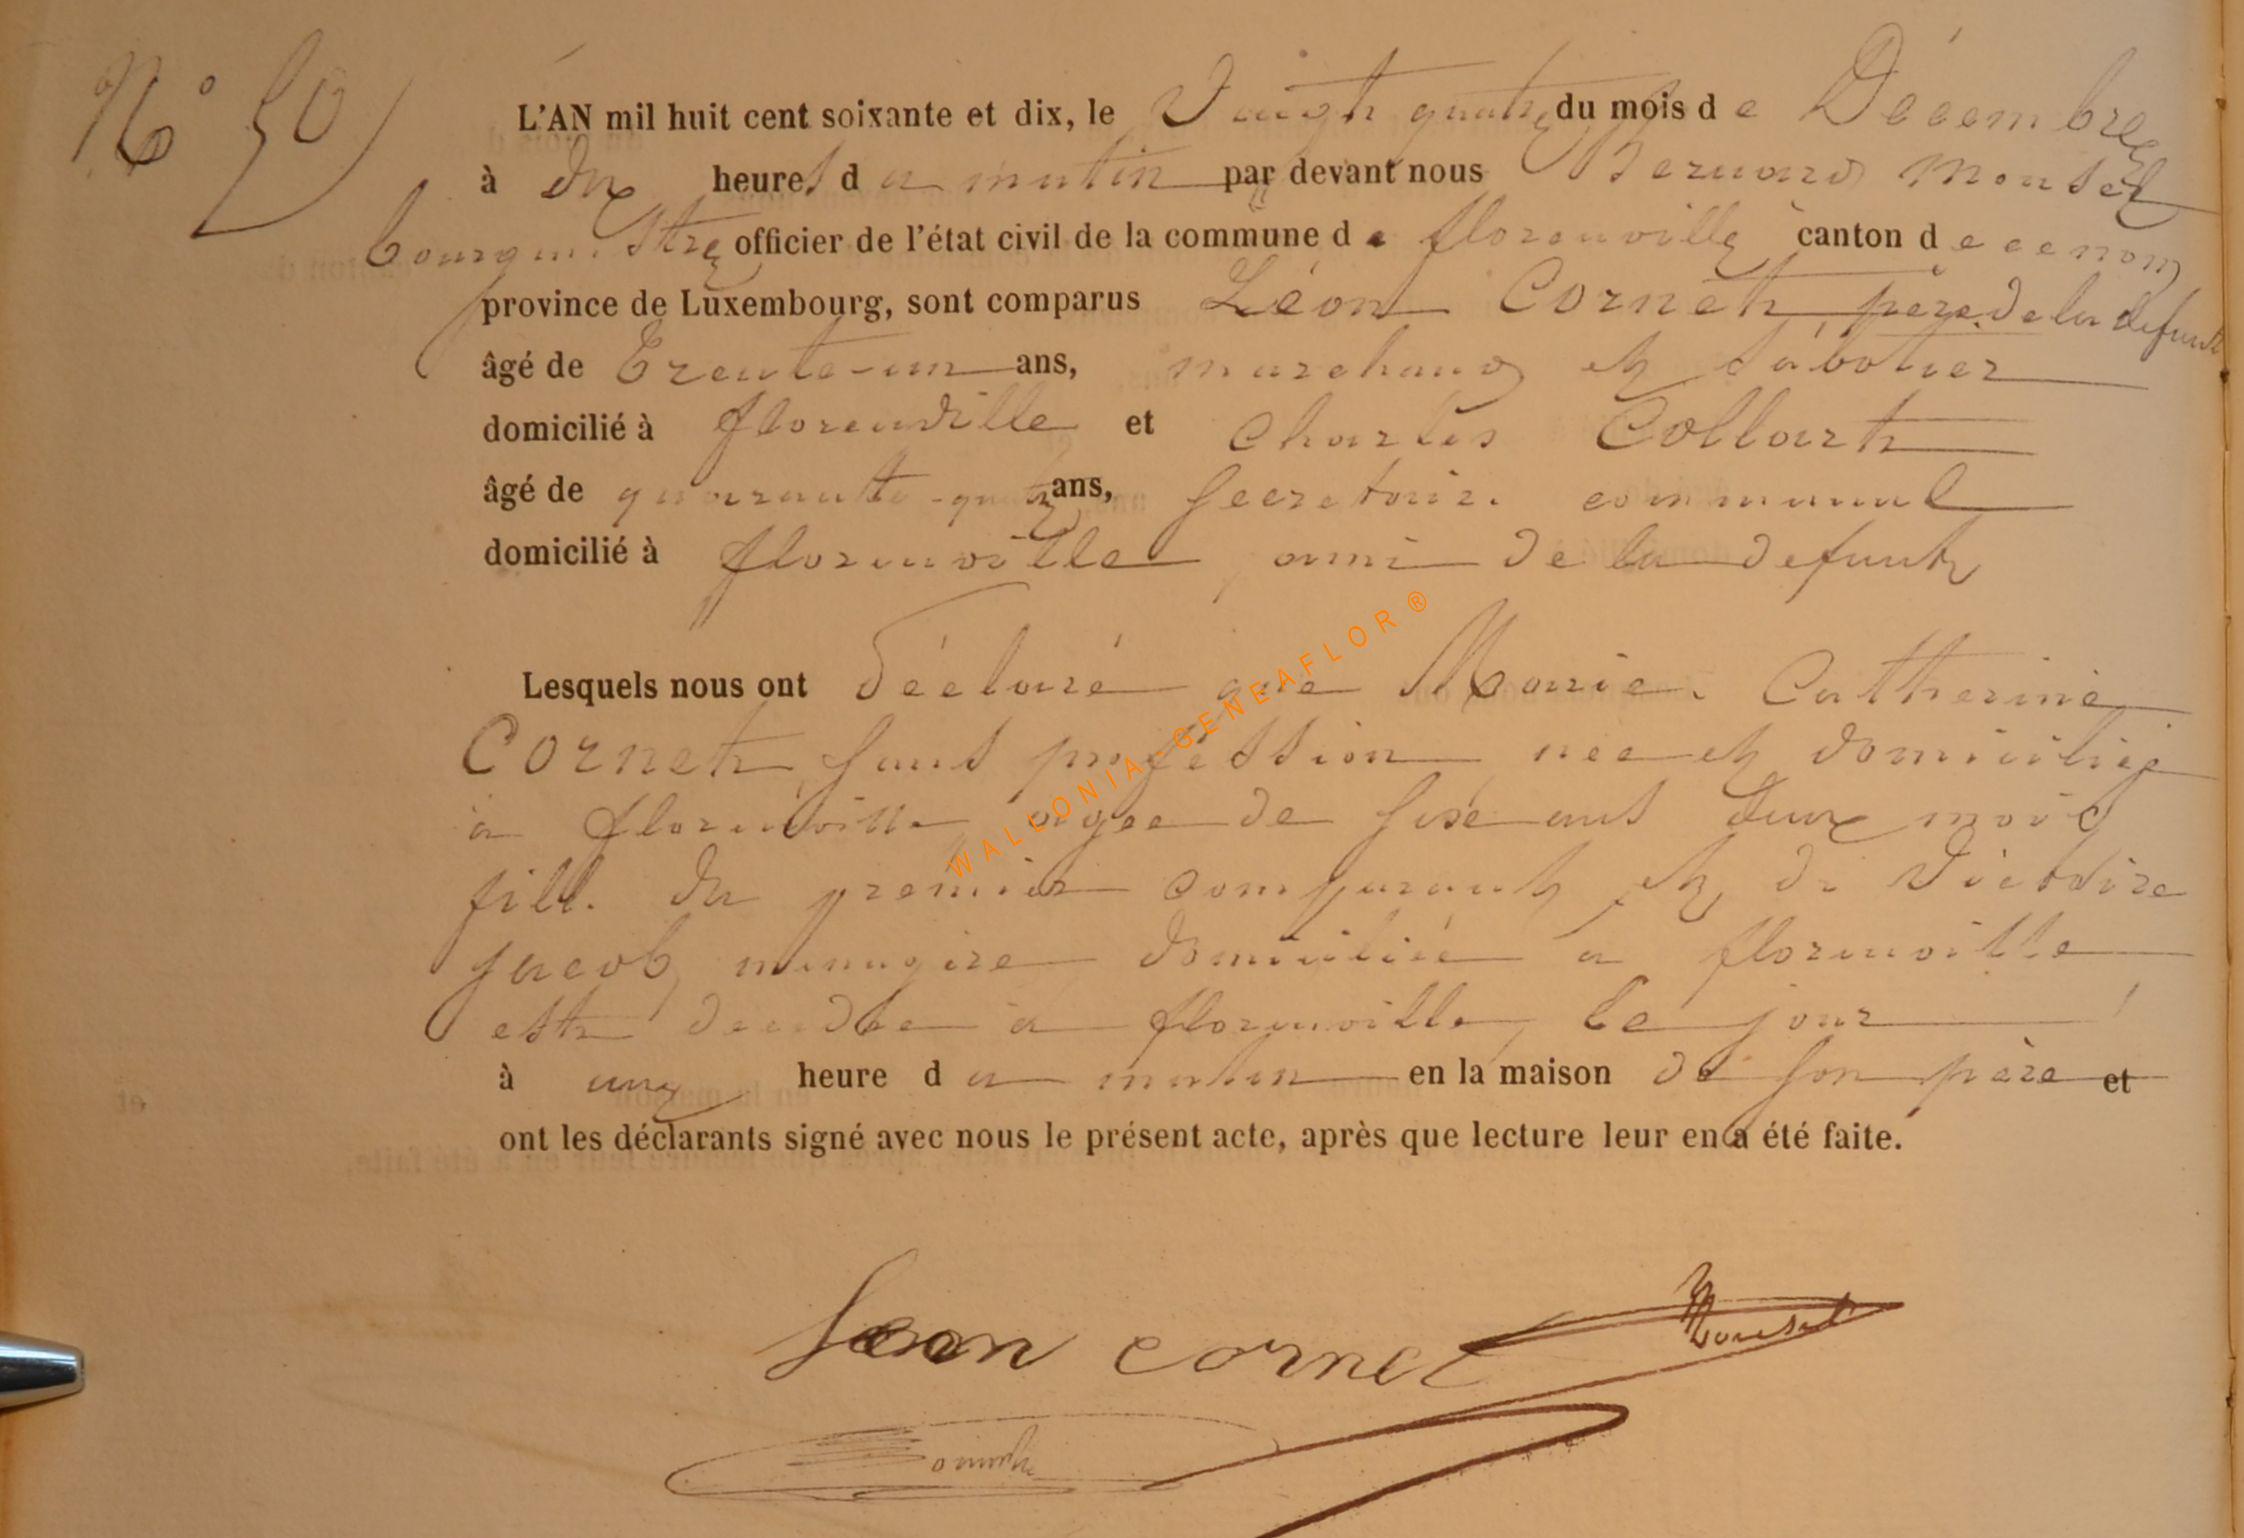 N° 50
L'AN mil huit cent soixante et dix, le Vingt quatre du mois de Décembre
à dix heures du matin par devant nous Bernard Monsel
bourgmestre officier de l'état civil de la commune de florenville canton de ce nom
province de Luxembourg, sont comparus Léon Cornet père de la defunte
âgé de Trente-un ans, marchand et sabotier
domicilié à florenville et Charles Collart
âgé de quarante-quatre ans, Secretaire communal
domicilié à florenville, ami de la defunte
Lesquels nous ont déclaré que Marie Catherine
Cornet sans profession née et domiciliée
à florenville agée de six ans deux mois
fille du premier comparant et de Victoire
Jacob, menagère domiciliée à florenville
est decedée à florenville, ce jour
à une heure du matin en la maison de son père et
ont les déclarants signé avec nous le présent acte, après que lecture leur en a été faite.
Monsel
Leon cornet
WALLONIA-GENEAFLOR ®